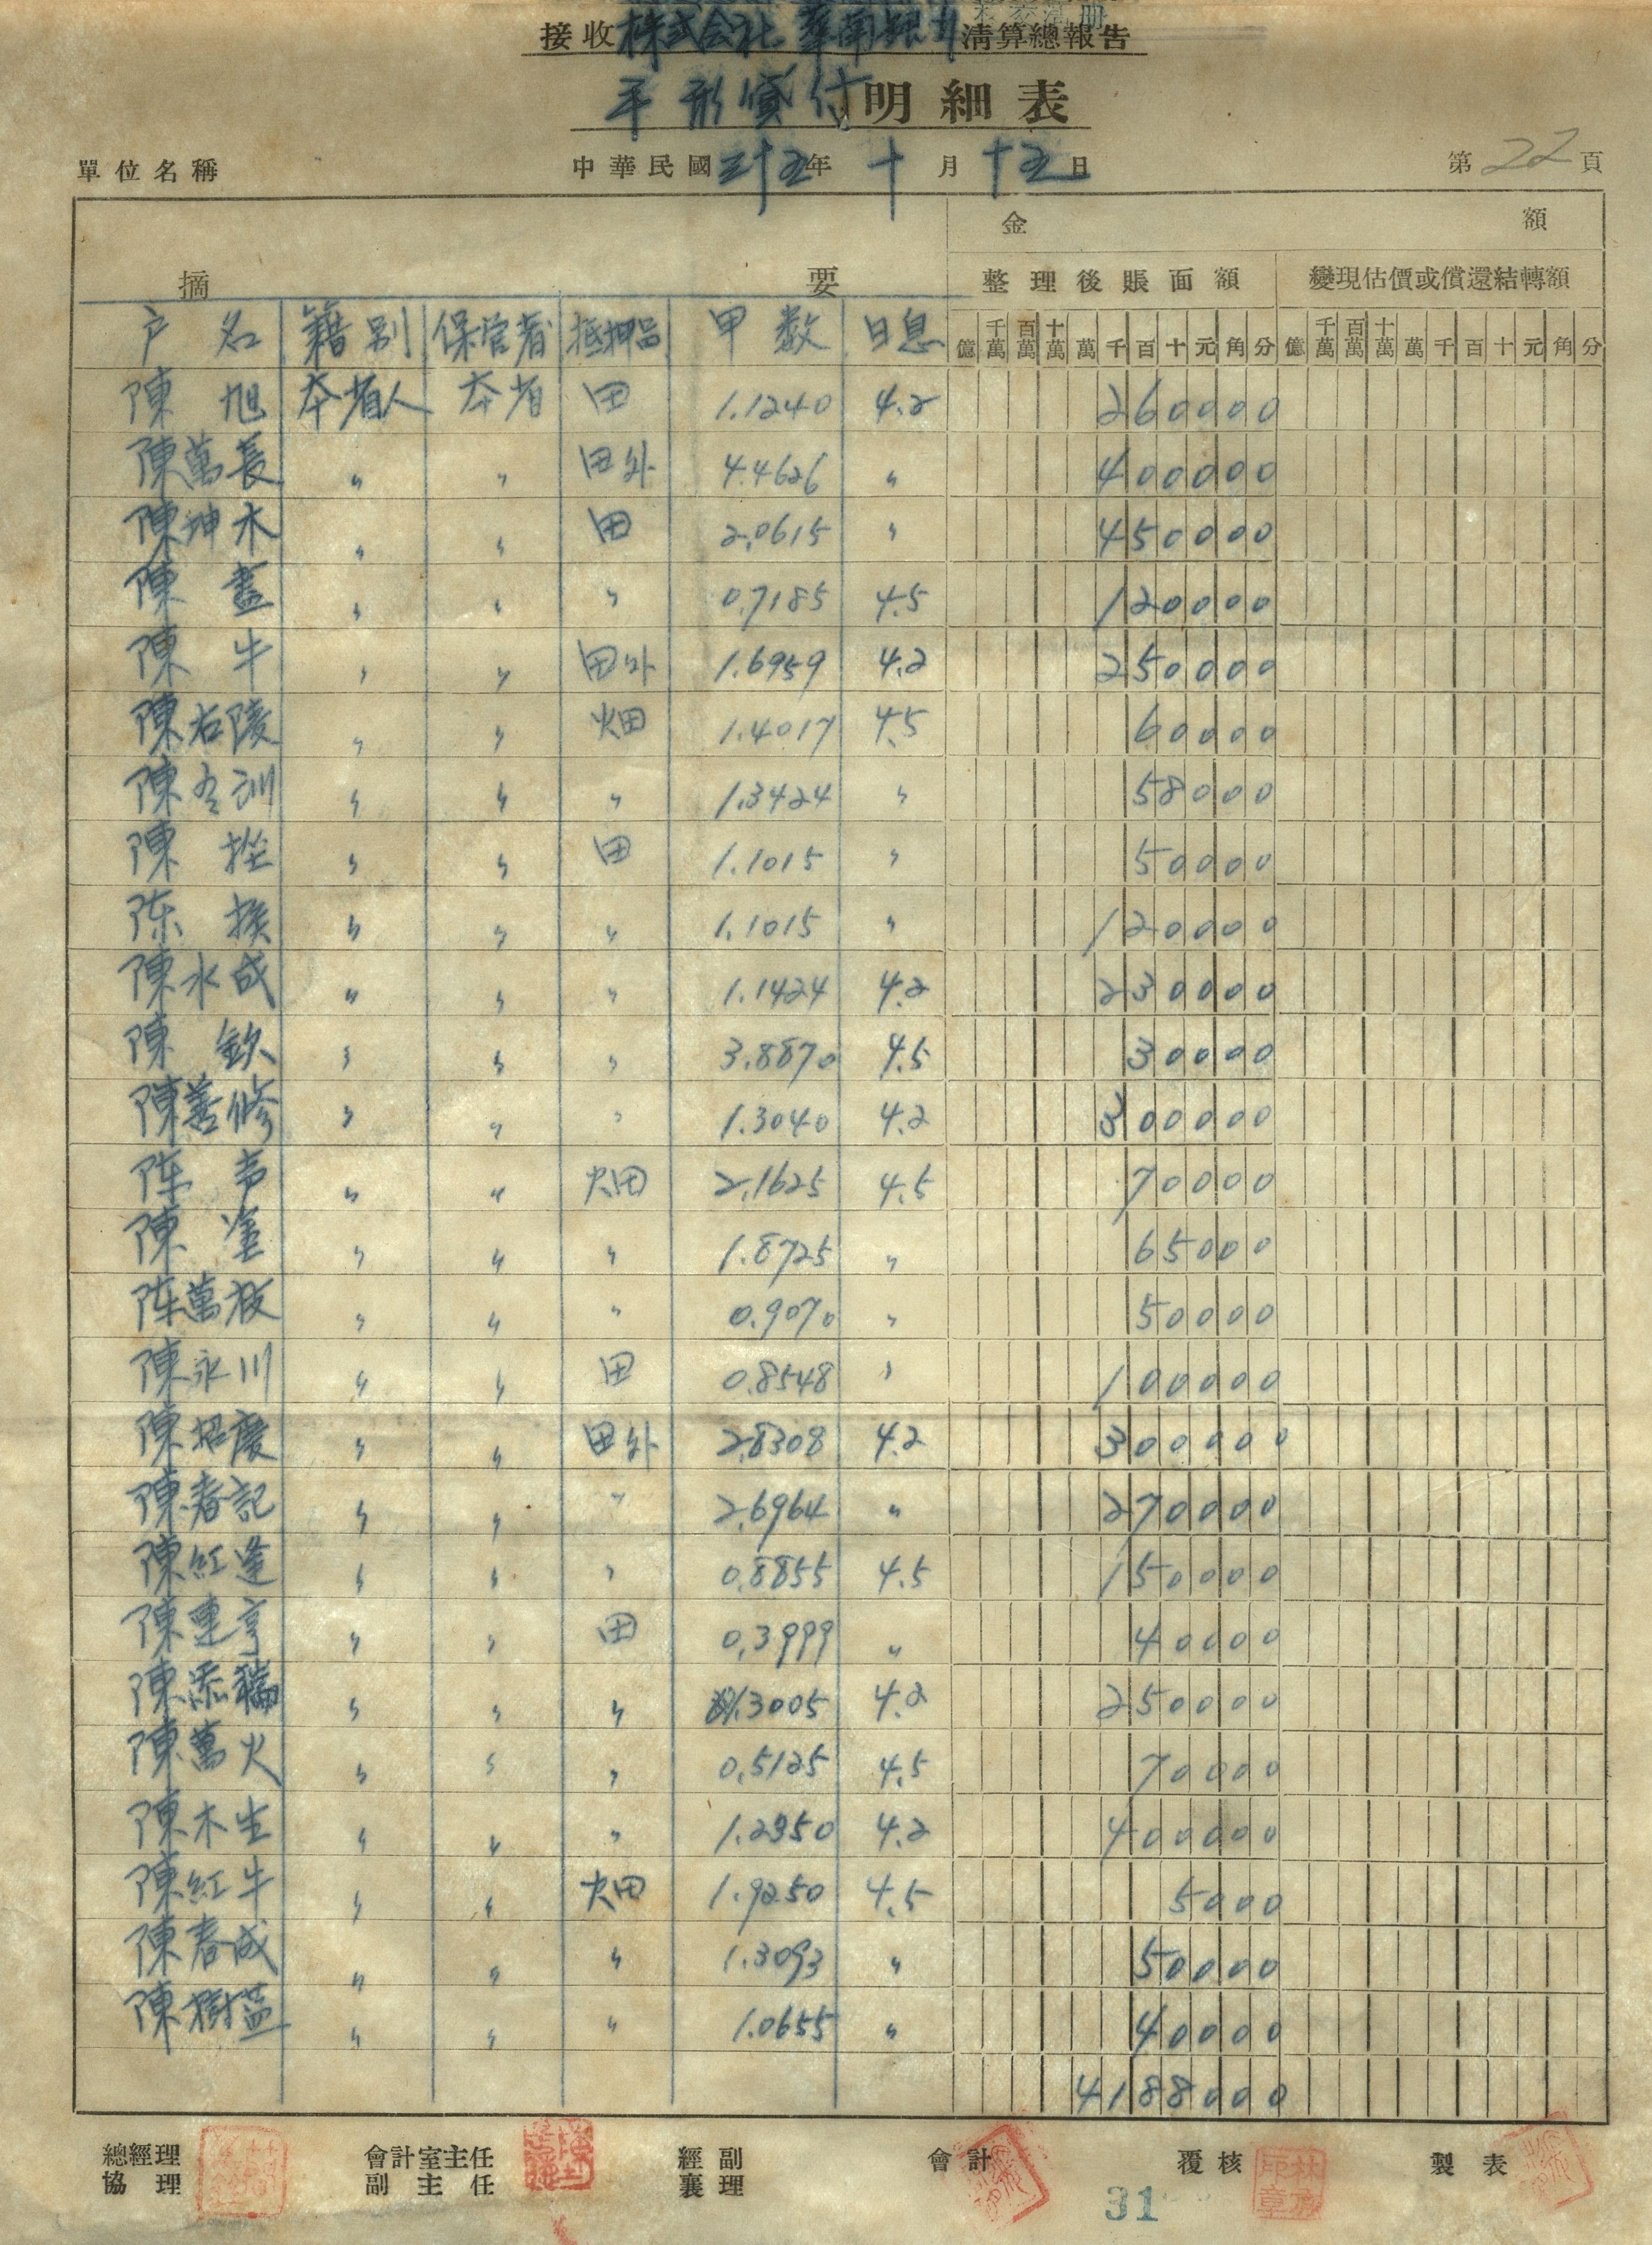 接收株式会社華南銀行清算總報告
平形貸付明細表
單位名稱 中華民國三十五年十月十五日 第22頁
摘要 金額
整理後賬面額 變現估價或償還結轉額
戶名 籍別 保管者 抵押品 甲数 日息 億 千萬 百萬 十萬 萬 千 百 十 元 角 分 億 千萬 百萬 十萬 萬 千 百 十 元 角 分
陳旭 本省人 本省 田 1.1240 4.2 260000
陳萬長 〃 〃 田外 4.4626 〃 400000
陳坤木 〃 〃 田 2.0615 〃 450000
陳盡 〃 〃 〃 0.7185 4.5 120000
陳牛 〃 〃 田外 1.6959 4.2 250000
陳右陵 〃 〃 畑 1.4017 4.5 60000
陳 訓 〃 〃 〃 1.3424 〃 58000
陳 〃 〃 田 1.1015 〃 50000
陈 〃 〃 〃 1.1015 〃 120000
陳水成 〃 〃 〃 1.1424 4.2 230000
陳欽 〃 〃 〃 3.8870 4.5 30000
陳善修 〃 〃 〃 1.3040 4.2 300000
陈 〃 〃 畑 2.1625 4.5 70000
陳 〃 〃 〃 1.8725 〃 65000
陈萬枝 〃 〃 〃 0.9070 〃 50000
陳永川 〃 〃 田 0.8548 〃 100000
陳招慶 〃 〃 田外 2.8308 4.2 300000
陳春記 〃 〃 〃 2.6964 〃 270000
陳紅逢 〃 〃 〃 0.8855 4.5 150000
陳連亨 〃 〃 田 0.3999 〃 40000
陳添 〃 〃 〃 1.3005 4.2 250000
陳萬火 〃 〃 〃 0.5125 4.5 70000
陳木生 〃 〃 〃 1.2950 4.2 400000
陳紅牛 〃 〃 畑 1.9250 4.5 5000
陳春成 〃 〃 〃 1.3093 〃 50000
陳樹 〃 〃 〃 1.0655 〃 40000
4188000
總經理 會計室主任 經副 會計 覆核 製表
協理 副主任 襄理
31